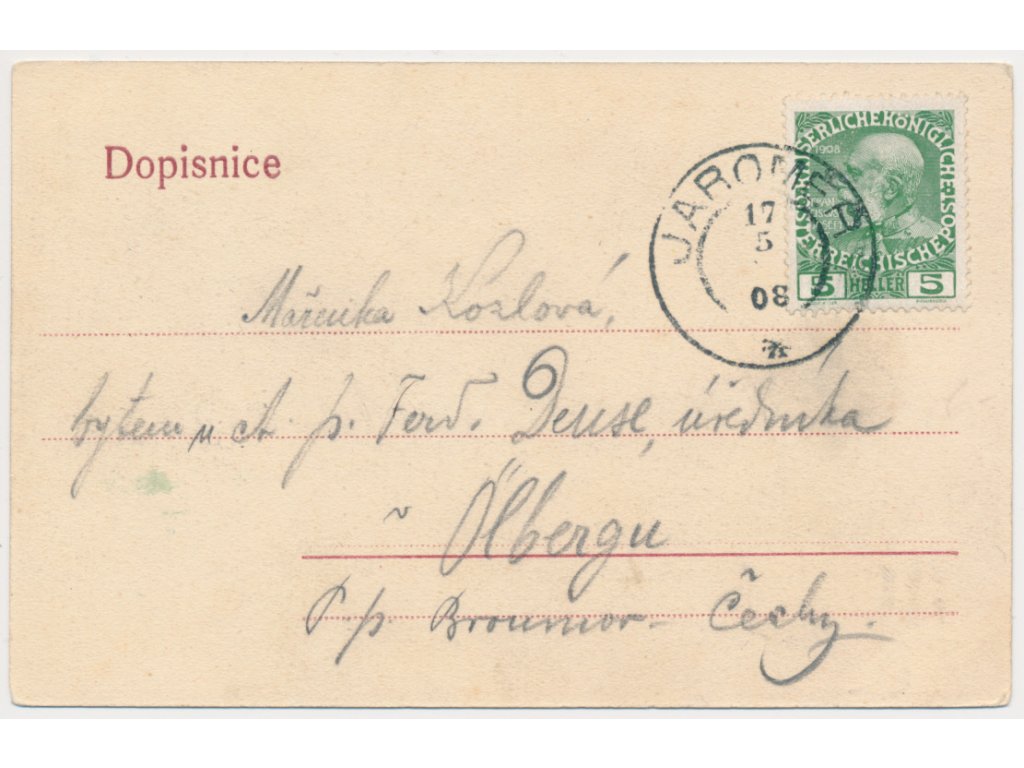 Dopisnice
KAISERLICHE KÖNIGLICHE ÖSTERREICHISCHE POST
1908
5 HELLER 5
JAROMĚŘ
17
5
08
Mařenka Kozlová,
bytem u ct. p. Ferd. Deuse, úředníka
v Ölbergu
P. p. Broumov - Čechy.